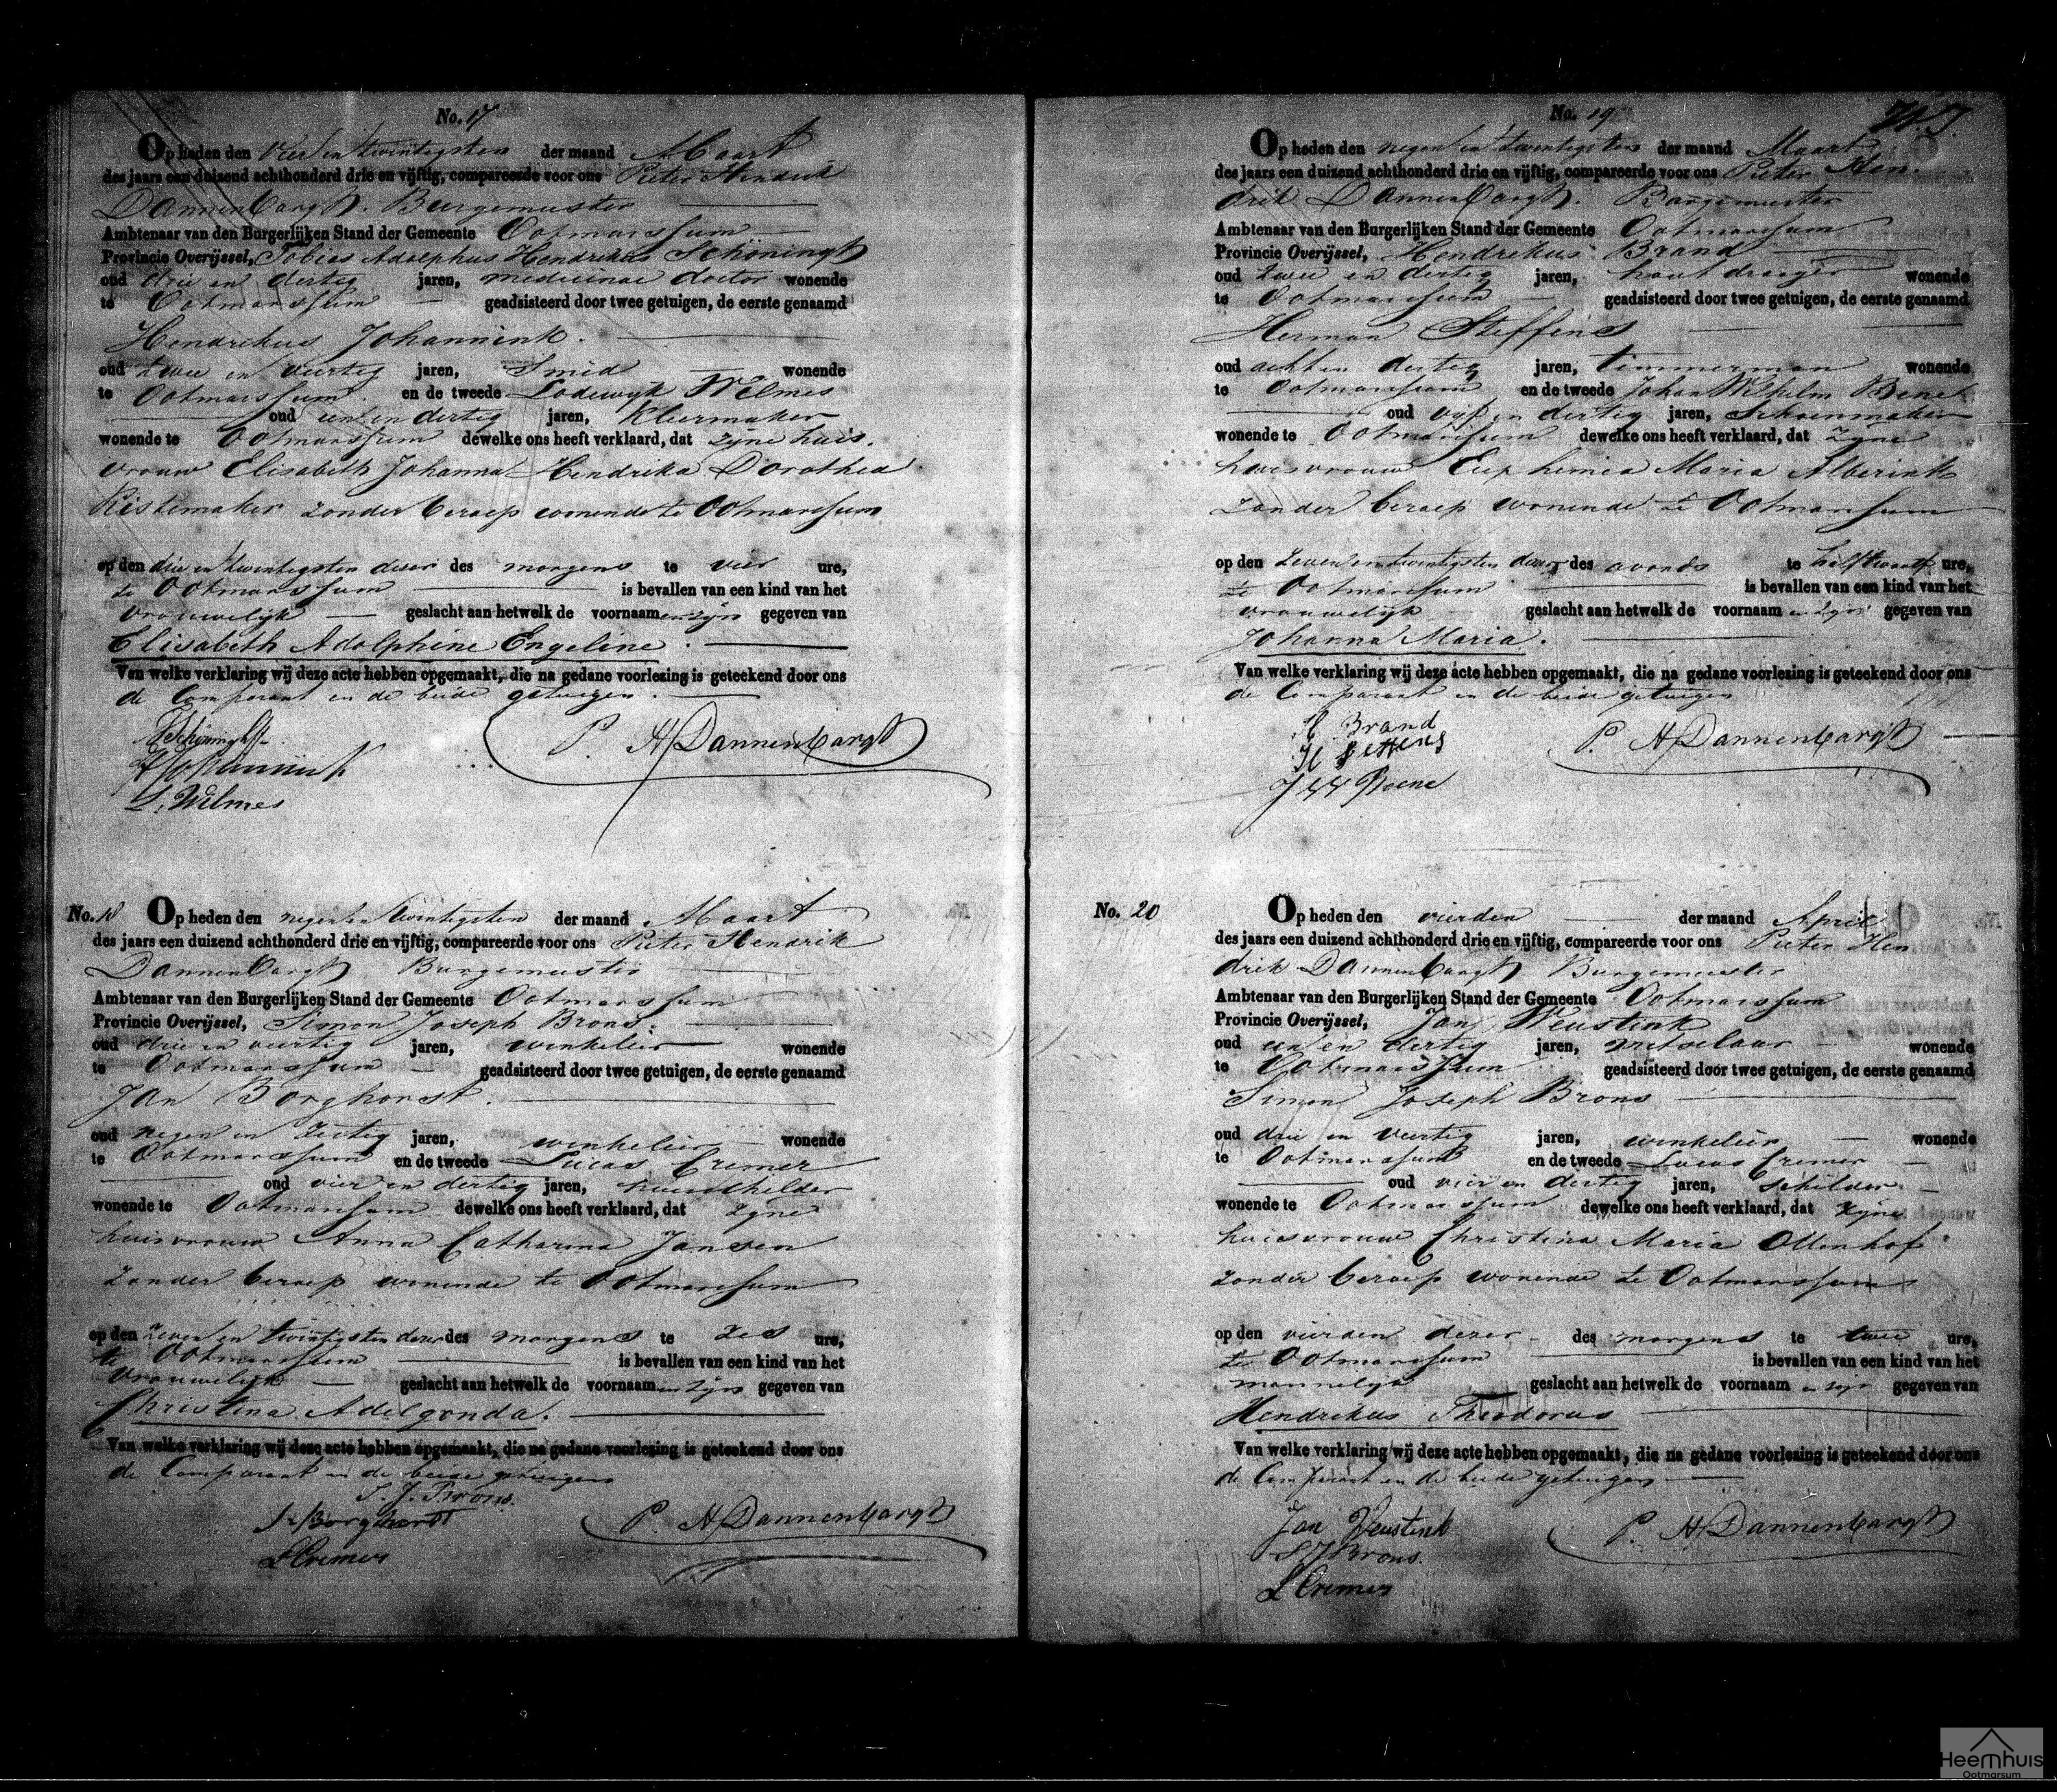 No. 17
Op heden den vier en twintigsten der maand Maart
des jaars een duizend achthonderd drie en vijftig, compareerde voor ons Pieter Hendrik
Dannenbargh. Burgemeester
Ambtenaar van den Burgerlijken Stand der Gemeente Ootmarssum
Provincie Overijssel, Tobias Adolphus Hendrikus Schöningh
oud drie en dertig jaren, medicinae doctor wonende
te Ootmarssum geadsisteerd door twee getuigen, de eerste genaamd
Hendrikus Johannink.
oud twee en veertig jaren, Smid wonende
te Ootmarssum. en de tweede Lodewyk Wilmes
oud een en dertig jaren, Kleermaker
wonende te Ootmarssum dewelke ons heeft verklaard, dat zyne huis.
vrouw Elisabeth Johanna Hendrika Dorothea
Kistemaker zonder beroep wonende te Ootmarssum
op den drie en twintigsten dezer des morgens te vier ure,
te Ootmarssum is bevallen van een kind van het
vrouwelijk geslacht aan hetwelk de voornaam en zyn gegeven van
Elisabeth Adolphine Engeline.
Van welke verklaring wij deze acte hebben opgemaakt, die na gedane voorlezing is geteekend door ons
de Comparant en de beide getuigen.
Schöningh
H Johannink
L. Wilmes
P. H Dannenbargh
No. 18 Op heden den negen en twintigsten der maand Maart
des jaars een duizend achthonderd drie en vijftig, compareerde voor ons Pieter Hendrik
Dannenbargh Burgemeester
Ambtenaar van den Burgerlijken Stand der Gemeente Ootmarssum
Provincie Overijssel, Simon Joseph Brons.
oud drie en veertig jaren, winkelier wonende
te Ootmarssum geadsisteerd door twee getuigen, de eerste genaamd
Jan Borghorst.
oud negen en zestig jaren, winkelier wonende
te Ootmarssum en de tweede Lucas Cremer
oud vier en dertig jaren,
wonende te Ootmarssum dewelke ons heeft verklaard, dat zyne
huisvrouw Anna Catharina Jansen
zonder beroep wonende te Ootmarssum
op den zeven en twintigsten dezer des morgens te zes ure,
te Ootmarssum is bevallen van een kind van het
vrouwelijk geslacht aan hetwelk de voornaam en zyn gegeven van
Christina Adelgonda.
Van welke verklaring wij deze acte hebben opgemaakt, die na gedane voorlezing is geteekend door ons
de Comparant en de beide getuigen
S. J. Brons.
J. Borghorst
L Cremer
P. H Dannenbargh
No. 19
Op heden den negen en twintigsten der maand Maart
des jaars een duizend achthonderd drie en vijftig, compareerde voor ons Pieter Hen.
drik Dannenbargh. Burgemeester
Ambtenaar van den Burgerlijken Stand der Gemeente Ootmarssum
Provincie Overijssel, Hendrikus Brand
oud twee en dertig jaren, houtdraayer wonende
te Ootmarssum geadsisteerd door twee getuigen, de eerste genaamd
Herman Steffens
oud acht en dertig jaren, timmerman wonende
te Ootmarssum en de tweede Johan Wilhelm Bene
oud vyf en dertig jaren, Schoenmaker
wonende te Ootmarssum dewelke ons heeft verklaard, dat zyne
huisvrouw Euphemia Maria Alberink
zonder beroep wonende te Ootmarssum
op den zeven en twintigsten dezer des avonds te half twaalf ure,
te Ootmarssum is bevallen van een kind van het
vrouwelijk geslacht aan hetwelk de voornaam en zyn gegeven van
Johanna Maria.
Van welke verklaring wij deze acte hebben opgemaakt, die na gedane voorlezing is geteekend door ons
de Comparant en de beide getuigen
H. Brand
H Steffens
J W Boene
P. H Dannenbargh
No. 20 Op heden den vierden der maand April
des jaars een duizend achthonderd drie en vijftig, compareerde voor ons Pieter Hen
drik Dannenbargh Burgemeester
Ambtenaar van den Burgerlijken Stand der Gemeente Ootmarssum
Provincie Overijssel, Jan Weustink
oud een en dertig jaren, metselaar wonende
te Ootmarssum geadsisteerd door twee getuigen, de eerste genaamd
Simon Joseph Brons
oud drie en veertig jaren, winkelier wonende
te Ootmarssum en de tweede Lucas Cremer
oud vier en dertig jaren, Schilder
wonende te Ootmarssum dewelke ons heeft verklaard, dat zyne
huisvrouw Christina Maria Ollenhof
zonder beroep wonende te Ootmarssum
op den vierden dezer des morgens te twee ure,
te Ootmarssum is bevallen van een kind van het
mannelyk geslacht aan hetwelk de voornaam en zyn gegeven van
Hendrikus Theodorus
Van welke verklaring wij deze acte hebben opgemaakt, die na gedane voorlezing is geteekend door ons
de Comparant en de beide getuigen
Jan Weustink
S J Brons.
L Cremer
P. H Dannenbargh
Heemhuis
Ootmarsum